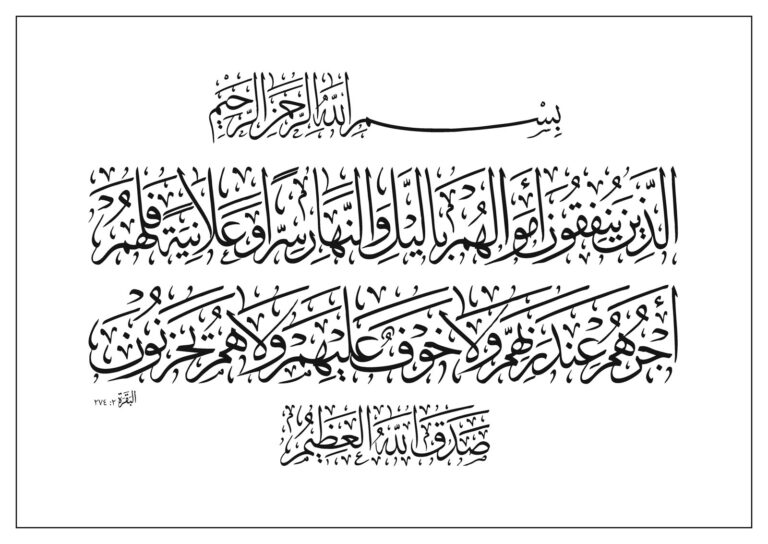 بِسْمِ اللَّهِ الرَّحْمَٰنِ الرَّحِيْمِ
الَّذِيْنَ يُنْفِقُونَ أَمْوَالَهُمْ بِاللَّيْلِ وَالنَّهَارِ سِرًّا وَعَلَانِيَةً فَلَهُمْ
أَجْرُهُمْ عِنْدَ رَبِّهِمْ وَلَا خَوْفٌ عَلَيْهِمْ وَلَا هُمْ يَحْزَنُوْنَ
البَقَرَة ٢: ٢٧٤
صَدَقَ اللَّهُ الْعَظِيْمُ